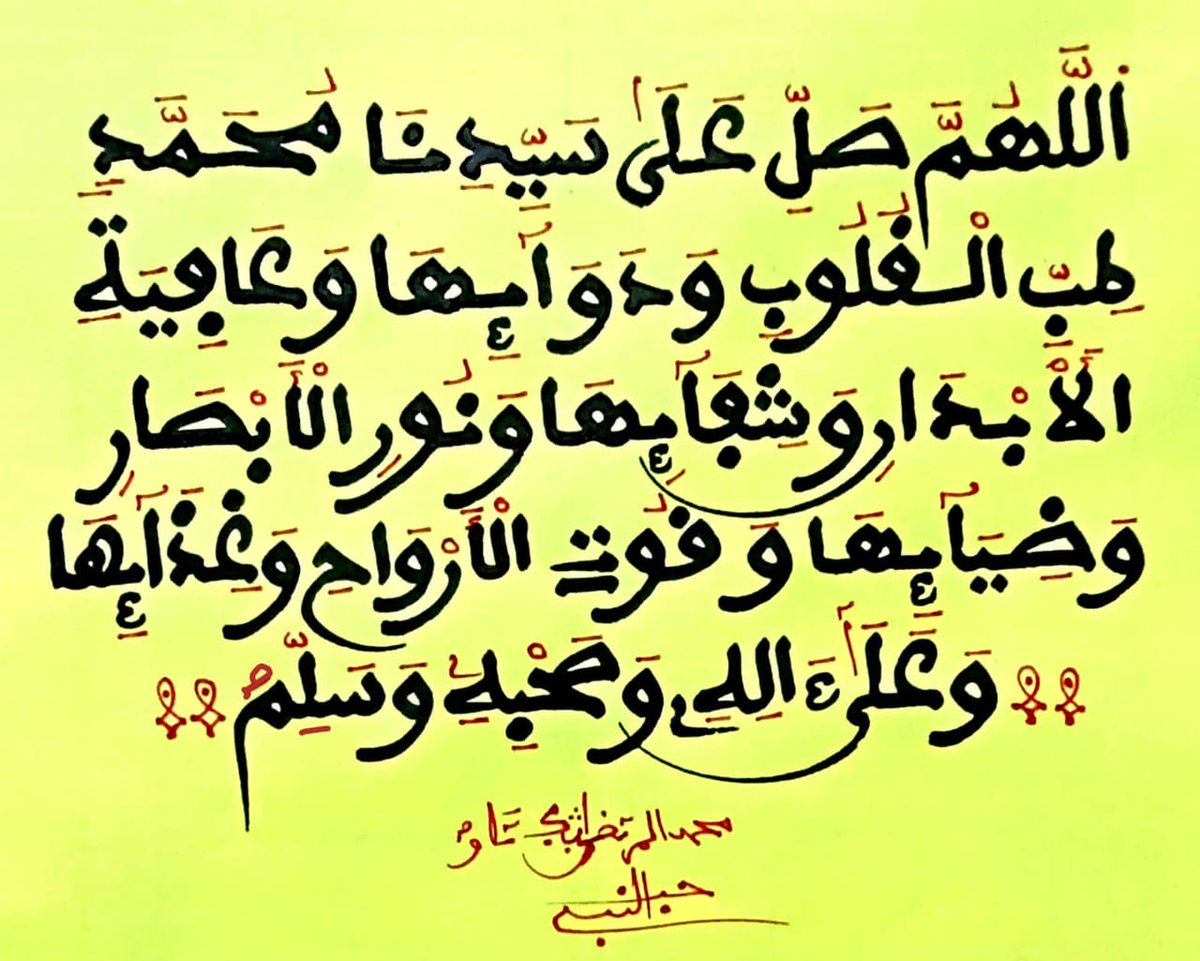 اَللَّهُمَّ صَلِّ عَلَى سَيِّدِنَا مُحَمَّدٍ
طِبِّ الْقُلُوبِ وَدَوَآئِهَا وَعَافِيَةِ
الْأَبْدَانِ وَشِفَآئِهَا وَنُورِ الْأَبْصَارِ
وَضِيَآئِهَا وَقُوتِ الْأَرْوَاحِ وَغِذَآئِهَا
وَعَلَى ءَالِهِ وَصَحْبِهِ وَسَلِّمْ
محمد المرتضى
حب النبي